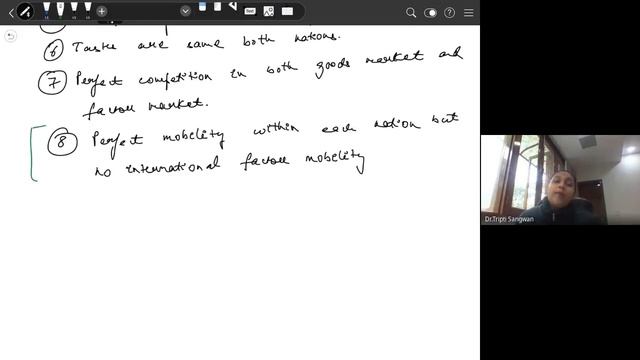 ⑥ Tastes are same both nations.
⑦ Perfect competition in both goods market and
factor market.
⑧ Perfect mobility within each nation but
no international factor mobility
Dr.Tripti Sangwan